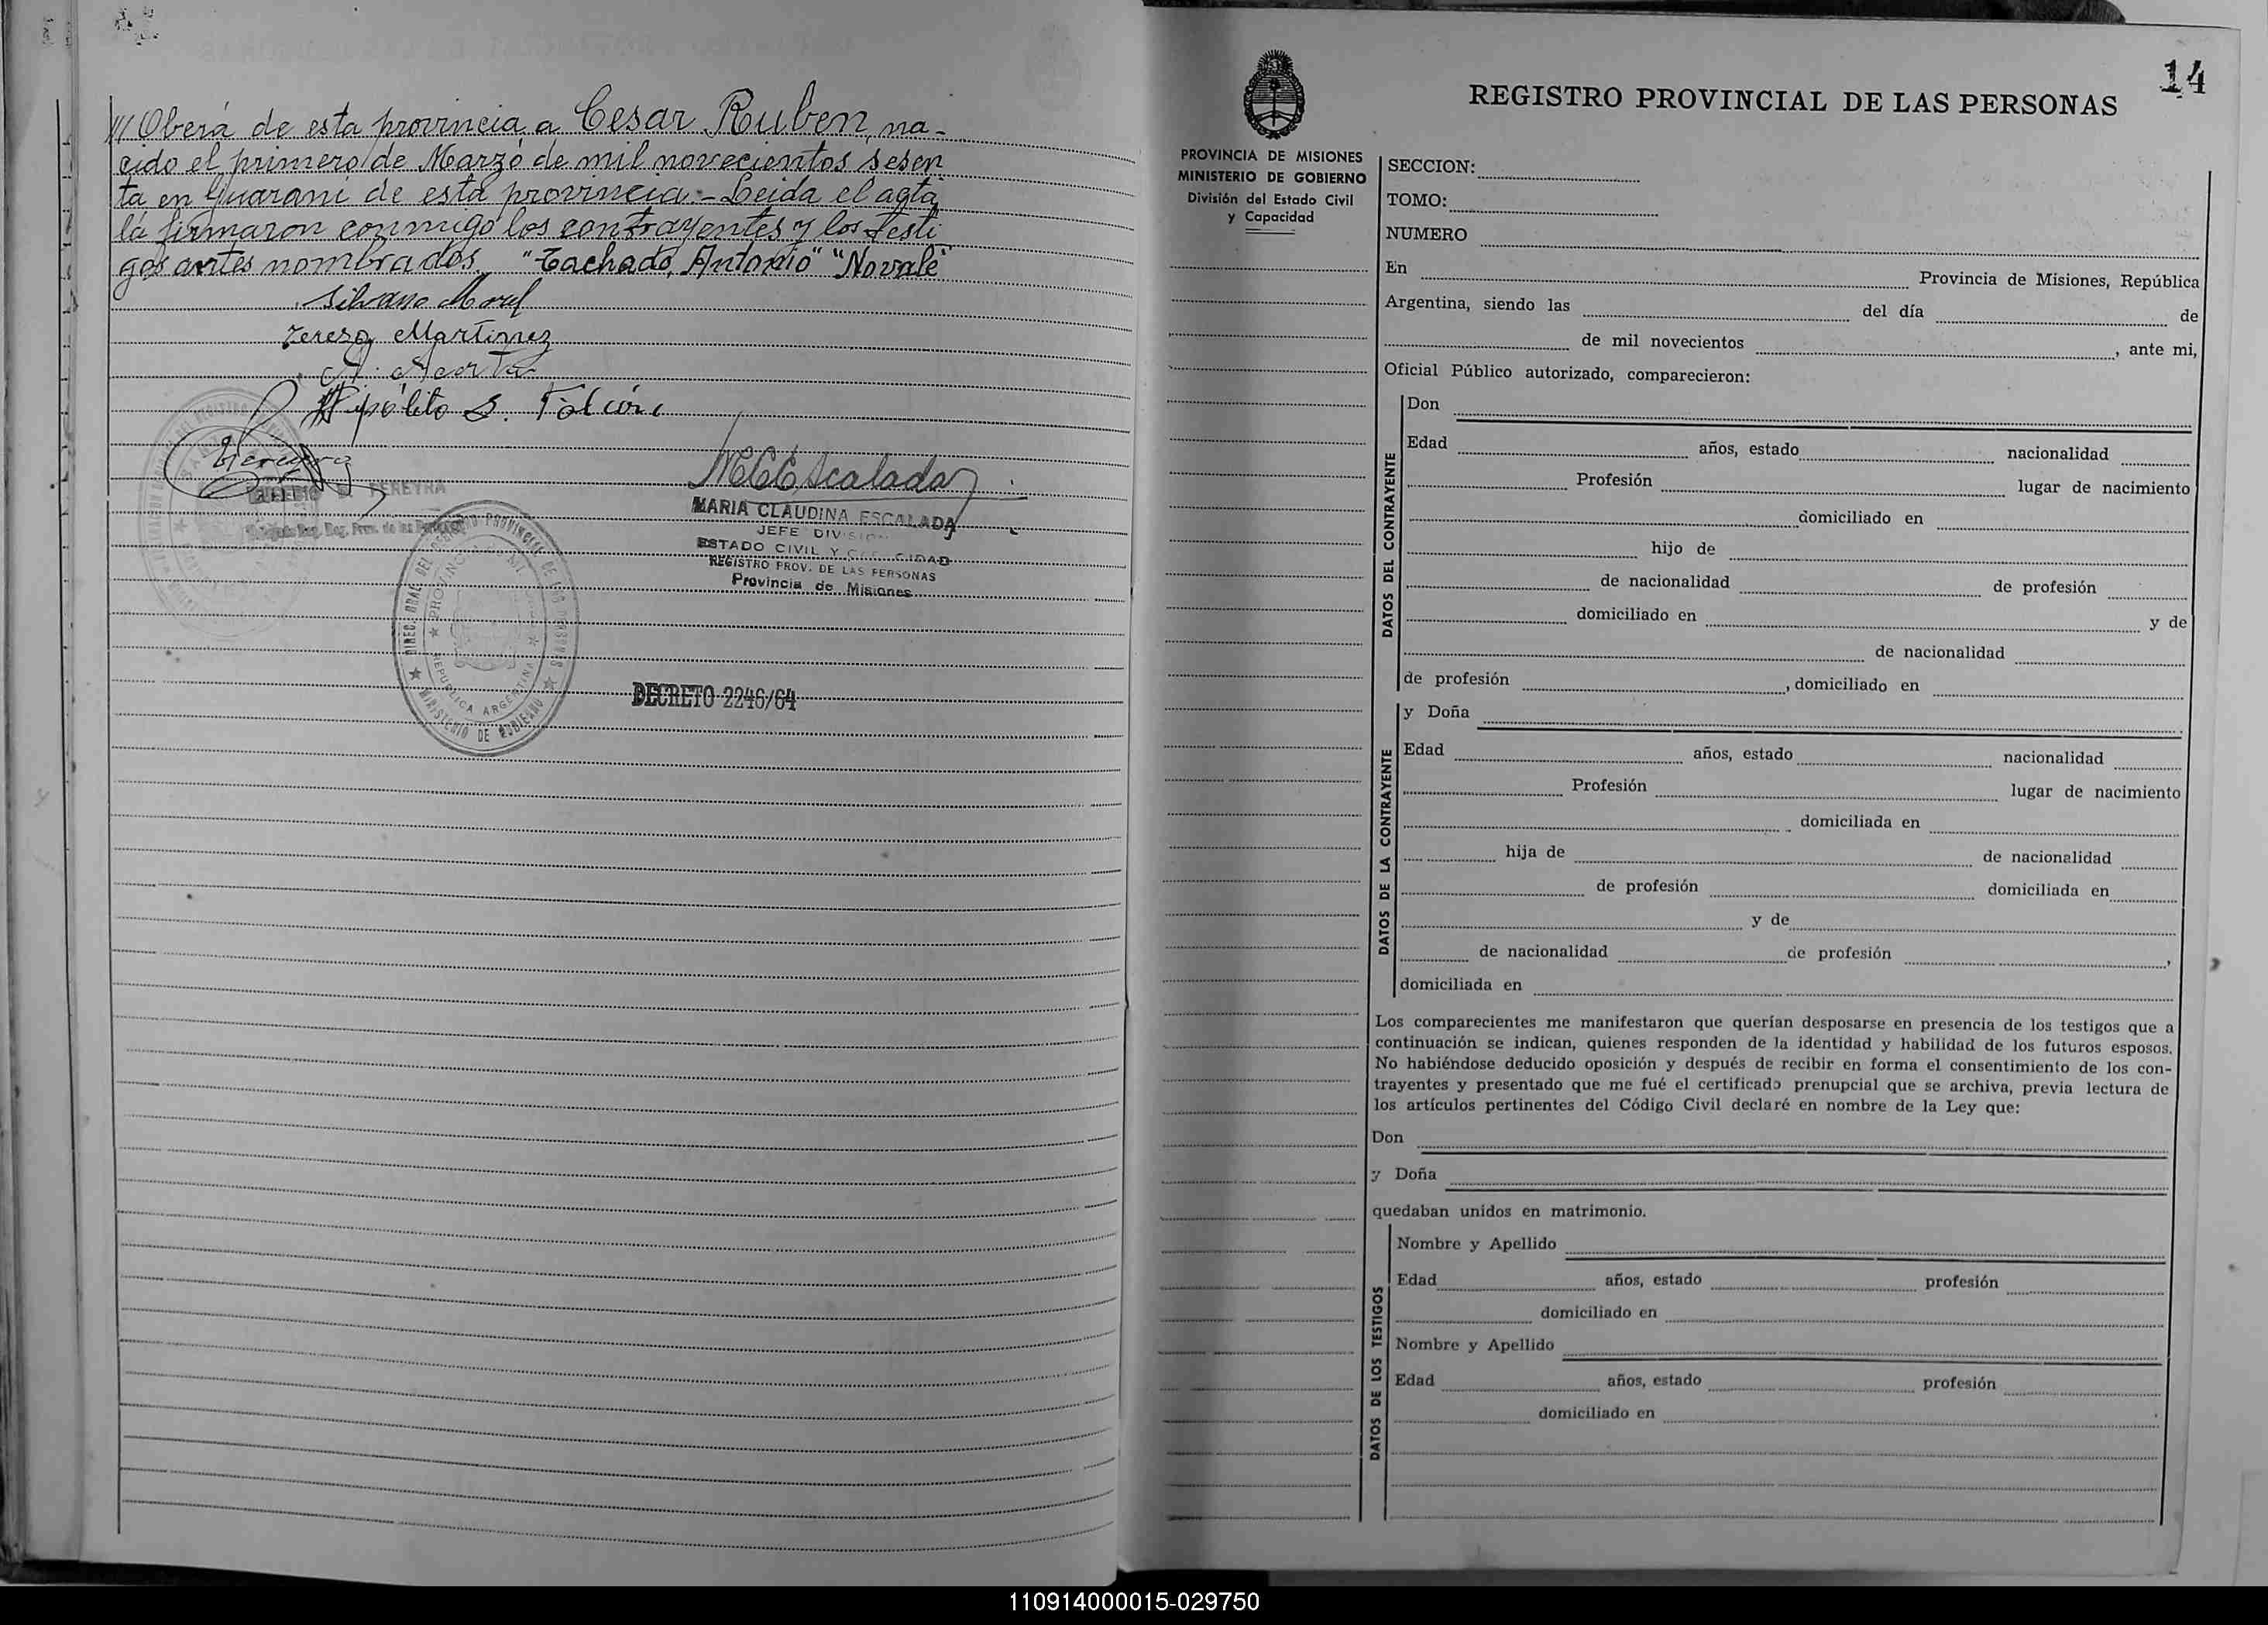 /// Oberá de esta provincia a Cesar Ruben, na-
cido el primero de Marzo de mil novecientos sesen
ta en Guarani de esta provincia.- Leida el acta
la firmaron conmigo los contrayentes y los testi
gos antes nombrados. "Tachado, Antonio" "No vale"
Silvano Morel
Teresa Martinez
Hipólito S. Falcón
PEREYRA
MARIA CLAUDINA ESCALADA
JEFE DIVISION
ESTADO CIVIL Y CAPACIDAD
REGISTRO PROV. DE LAS PERSONAS
Provincia de Misiones
DIREC. GRAL. DEL REGISTRO PROVINCIAL DE LAS PERSONAS
MINISTERIO DE GOBIERNO
REPUBLICA ARGENTINA
DECRETO 2246/64
14
REGISTRO PROVINCIAL DE LAS PERSONAS
PROVINCIA DE MISIONES
MINISTERIO DE GOBIERNO
División del Estado Civil
y Capacidad
SECCION:
TOMO:
NUMERO
En Provincia de Misiones, República
Argentina, siendo las del día de
de mil novecientos , ante mi,
Oficial Público autorizado, comparecieron:
DATOS DEL CONTRAYENTE
Don
Edad años, estado nacionalidad
Profesión lugar de nacimiento
domiciliado en
hijo de
de nacionalidad de profesión
domiciliado en y de
de nacionalidad
de profesión , domiciliado en
DATOS DE LA CONTRAYENTE
y Doña
Edad años, estado nacionalidad
Profesión lugar de nacimiento
domiciliada en
hija de de nacionalidad
de profesión domiciliada en
y de
de nacionalidad de profesión ,
domiciliada en
Los comparecientes me manifestaron que querían desposarse en presencia de los testigos que a
continuación se indican, quienes responden de la identidad y habilidad de los futuros esposos.
No habiéndose deducido oposición y después de recibir en forma el consentimiento de los con-
trayentes y presentado que me fué el certificado prenupcial que se archiva, previa lectura de
los artículos pertinentes del Código Civil declaré en nombre de la Ley que:
Don
y Doña
quedaban unidos en matrimonio.
DATOS DE LOS TESTIGOS
Nombre y Apellido
Edad años, estado profesión
domiciliado en
Nombre y Apellido
Edad años, estado profesión
domiciliado en
110914000015-029750